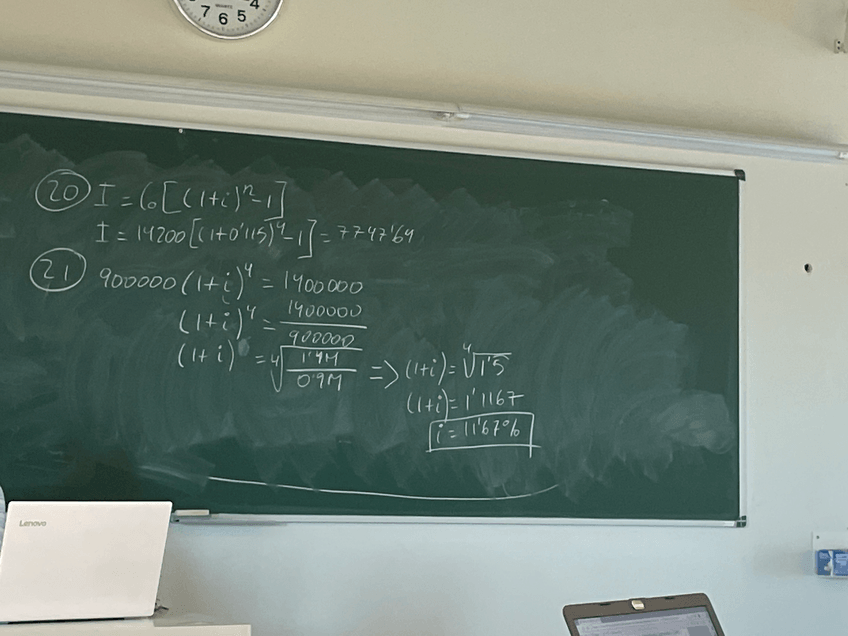 7 6 5 4
20 I = C₀[(1+i)ⁿ-1]
I = 14200[(1+0'115)⁴-1] = 7747'64
21 900000(1+i)⁴ = 1400000
(1+i)⁴ = 1400000/900000
(1+i) = ⁴√(1'4M/0'9M) => (1+i) = ⁴√1'5
(1+i) = 1'1167
i = 11'67%
Lenovo